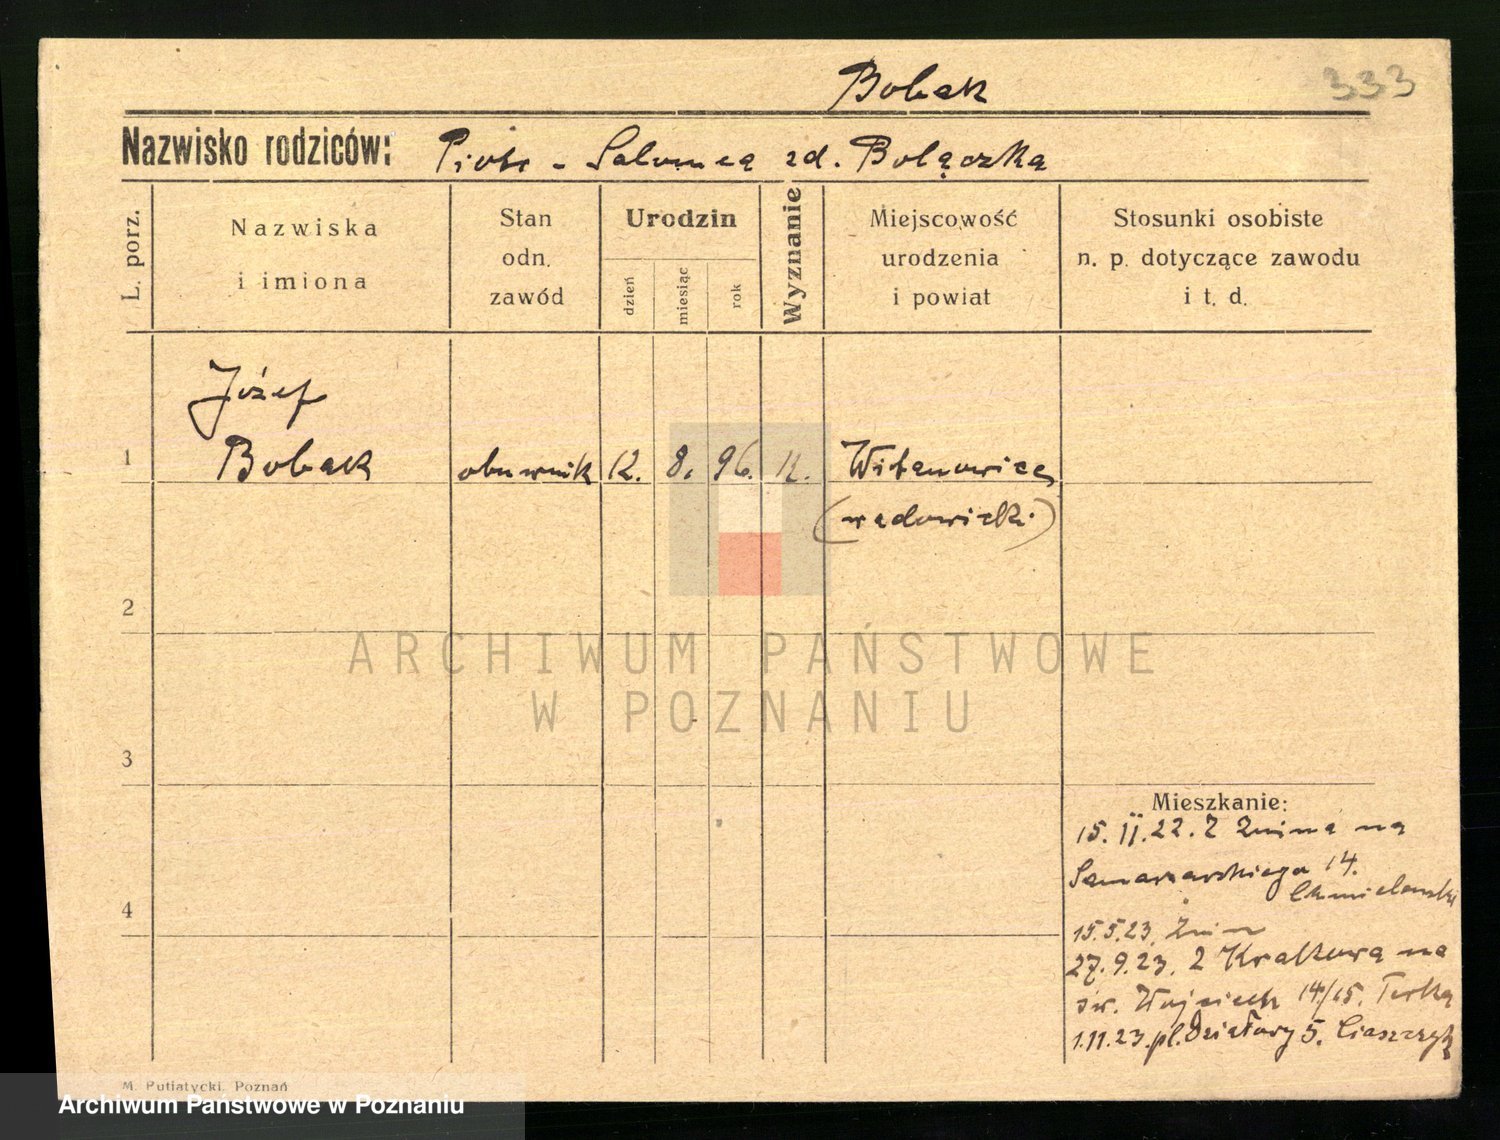 Bobak
333
Nazwisko rodziców: Piotr - Salomea zd. Bolączka
L. porz.
Nazwiska
i imiona
Stan
odn.
zawód
Urodzin
dzień
miesiąc
rok
Wyznanie
Miejscowość
urodzenia
i powiat
Stosunki osobiste
n. p. dotyczące zawodu
i t. d.
Józef
1 Bobak obuwnik 12. 8. 96. k. Witanowice
(wadowicki)
2
ARCHIWUM PAŃSTWOWE
W POZNANIU
3
Mieszkanie:
15. II. 22. Z Żnina na
Samarzewskiego 14.
Chmielewski
4
15.5.23. Żnin
27.9.23. z Krakowa na
św. Wojciech 14/15.
1.11.23. pl. Działowy 5. Ciaszczyk
M. Putiatycki, Poznań
Archiwum Państwowe w Poznaniu